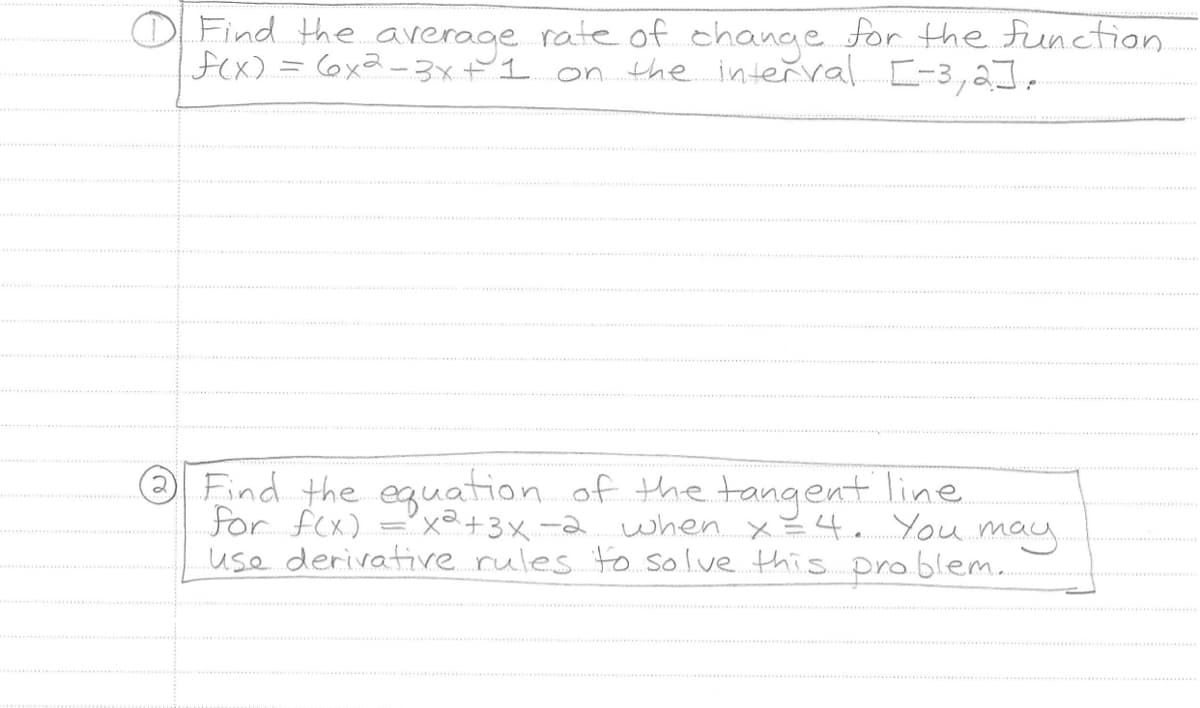 ① Find the average rate of change for the function
f(x) = 6x² - 3x + 1 on the interval [-3,2].
② Find the equation of the tangent line
for f(x) = x²+3x-2 when x=4. You may
use derivative rules to solve this problem.